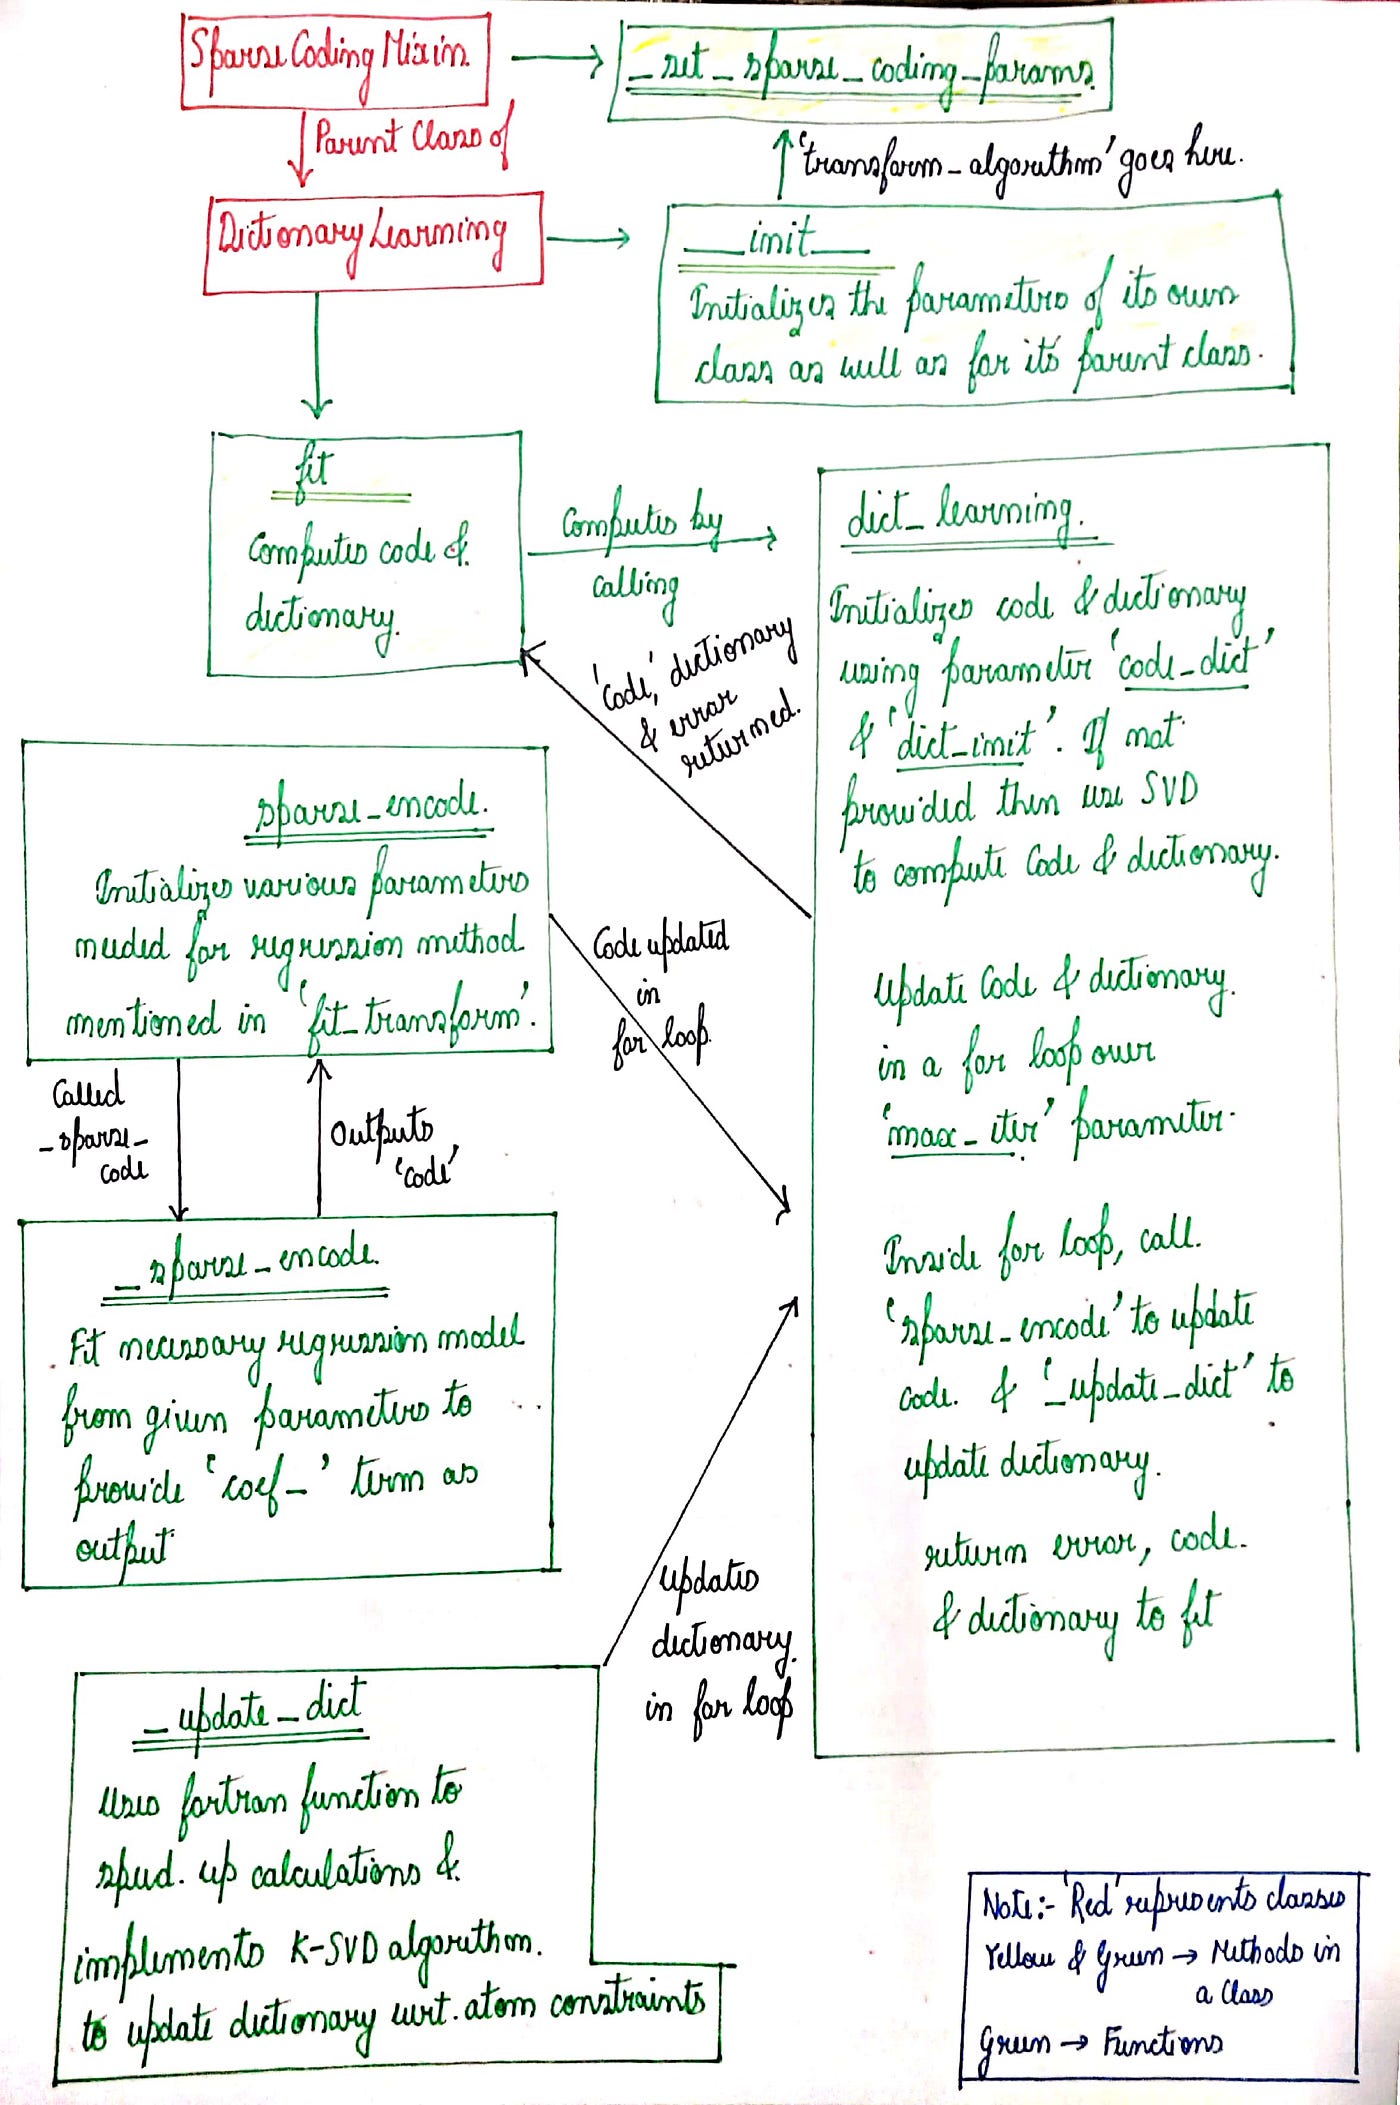 Sparse Coding Mixin.
_set_sparse_coding_params.
Parent Class of
'transform_algorithm' goes here.
Dictionary Learning
__init__
Initializes the parameters of its own
class as well as for it's parent class.
fit
Computes code &
dictionary.
Computes by
calling
'code', dictionary
& error
returned.
dict_learning.
Initializes code & dictionary
using parameter 'code_dict'
& 'dict_init'. If not
provided then use SVD
to compute Code & dictionary.
Update Code & dictionary.
in a for loop over
'max_iter' parameter.
Inside for loop, call.
'sparse_encode' to update
code. & '_update_dict' to
update dictionary.
return error, code.
& dictionary to fit
sparse_encode.
Initializes various parameters
needed for regression method
mentioned in 'fit_transform'.
Code updated
in
for loop.
Called
_sparse_
code
Outputs
'code'
_sparse_encode.
Fit necessary regression model
from given parameters to
provide 'coef_' term as
output
Updates
dictionary.
in for loop
_update_dict
Uses fortran function to
speed. up calculations &
implements K-SVD algorithm.
to update dictionary wrt. atom constraints
Note:- 'Red' represents classes
Yellow & Green → Methods in
a Class
Green → Functions